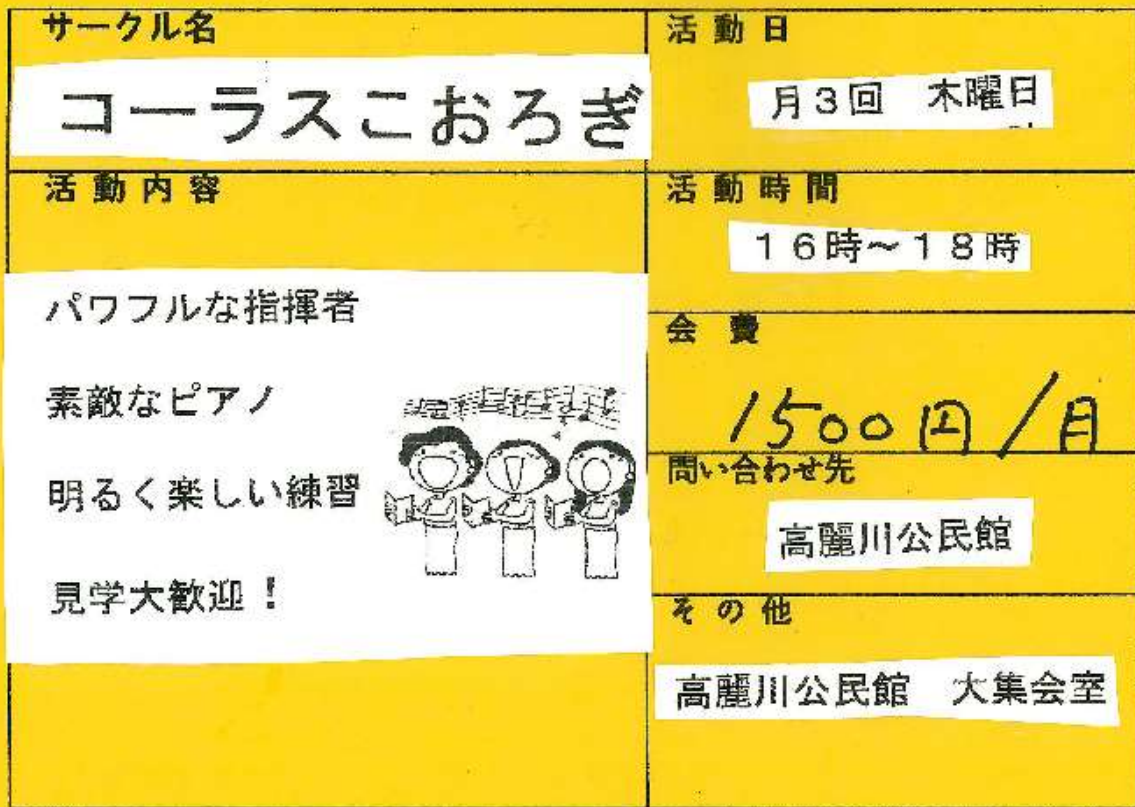 サークル名
コーラスこおろぎ
活動内容
パワフルな指揮者
素敵なピアノ
明るく楽しい練習
見学大歓迎！
活動日
月3回　木曜日
活動時間
１６時～１８時
会費
1500円/月
問い合わせ先
高麗川公民館
その他
高麗川公民館　大集会室